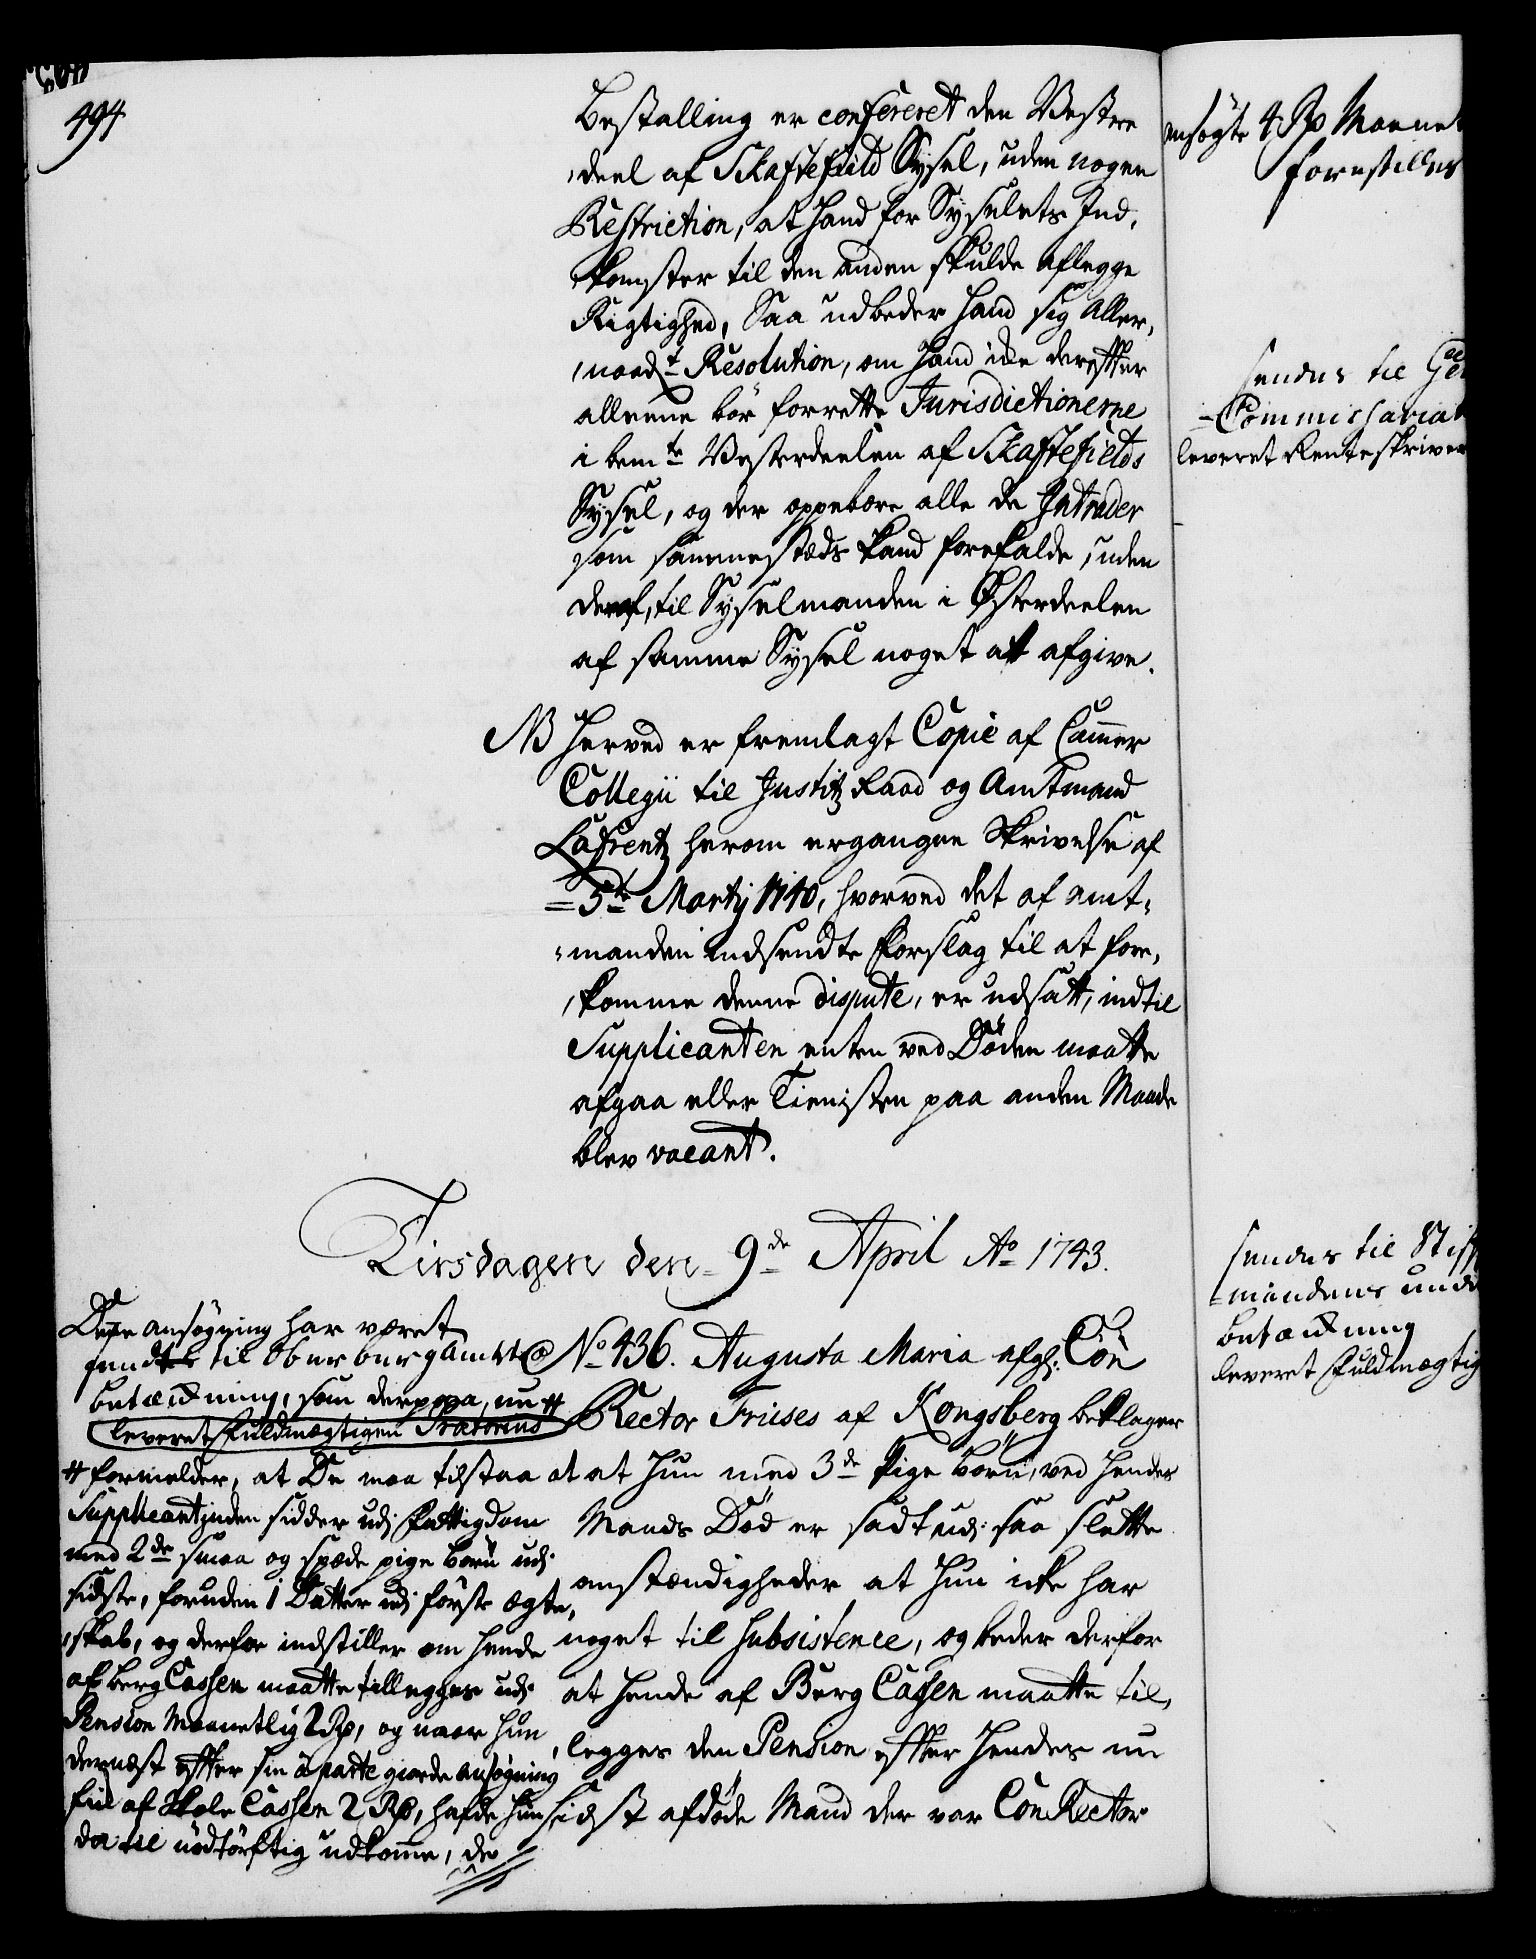 494
Bestalling er confereret den Vestre
deel af Skaftefield Sysel, uden nogen
Restriction, at hand for Syselets Ind,
komster til den anden skulde aflegge
Rigtighed, Saa udbeder hand sig Aller,
naadt Resolution, om hand icke derefter
alleene bör forrette Jurisdictionerne
i bemte Vesterdeelen af Skaftefields
Sysel, og der oppebære alle de Intrader
som sammestæds kand forefalde, uden
deraf, til Syselmanden i Østerdeelen
af samme Sysel noget att afgive.
NB Herved er fremlagt Copie af Cammer
Collegii til Justitz Raad og Amtmand
Lafrentz herom ergangne Skrivelse af
5te Martij 1740, hvorved det af Amt,
manden indsendte Forslag til at fore,
komme denne dispute, er udsatt, indtil
Supplicanten enten ved Döden maatte
afgaa eller Tienisten paa anden Maade
blev vacant.
Tirsdagen den 9de April Ao 1743.
Dene ansøgning har været
sendt til Oberbergamtets
betænckning, som derpaa, nu #
leveret Fuldmægtigen Prætorius
# formelder, at De maa tilstaa at
Supplicantinden sidder udj Fattigdom
med 2de smaa og spæde pige børn udj
sidste, foruden 1 Datter udj første Ægte,
skab, og derfor indstiller om hende
af Berg Cassen maatte tillegges udj
Pension Maanetlig 2 Rd, og naar hun
dernæst efter sin à parte giorde ansøgning
fik af Skole Cassen 2 Rd, hafde hun
da til nödtörftig udkomme, de
No 436. Augusta Maria afg: Con
Rector Frieses af Kongsberg beklager
at hun med 3de Pige børn, ved hendes
Mands Död er sadt udj saa slette
omstændigheder at hun icke har
noget til Subsistence, og beder derfor
at hende af Berg Cassen maatte til,
legges den Pension efter hendes nu
sidst afdöde Mand der var ConRector
ansögte 4 Rd Maanet
forestilles
sendes til Gen
Commissariat
leveret Renteskriver
sendes til Stift
mandens
betænckning
leveret Fuldmægtig